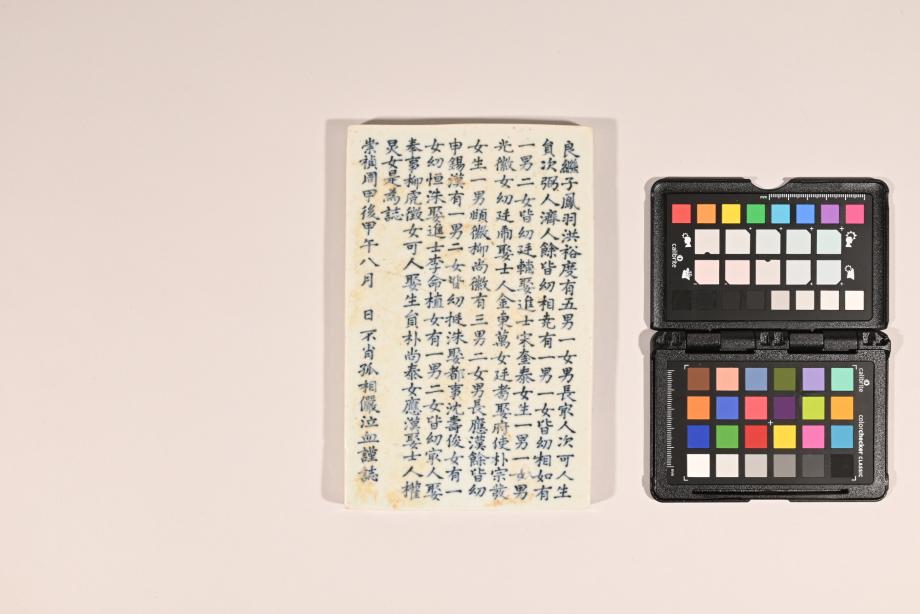 良繼子鳳羽洪裕度有五男一女男長家人次可人生
員次弼人濟人餘皆幼相堯有一男一女皆幼相如有
一男二女皆幼廷輔娶進士宋奎泰女生一男一女男
光徽女幼廷鼐娶士人金東萬女廷耆娶府使朴宗
女生一男頤徽柳尚徽有三男二女男長應漢餘皆幼
申錫漢有一男二女皆幼挺洙娶都事沈壽俊女有一
女幼恒洙娶進士李命植女有一男二女皆幼家人娶
奉事柳徵女可人娶生員朴尚泰女應漢娶士人權
炅女是為誌
崇禎周甲後甲午八月 日不肖孤相儼泣血謹誌
calibrite
calibrite
colorchecker CLASSIC
mm
mm